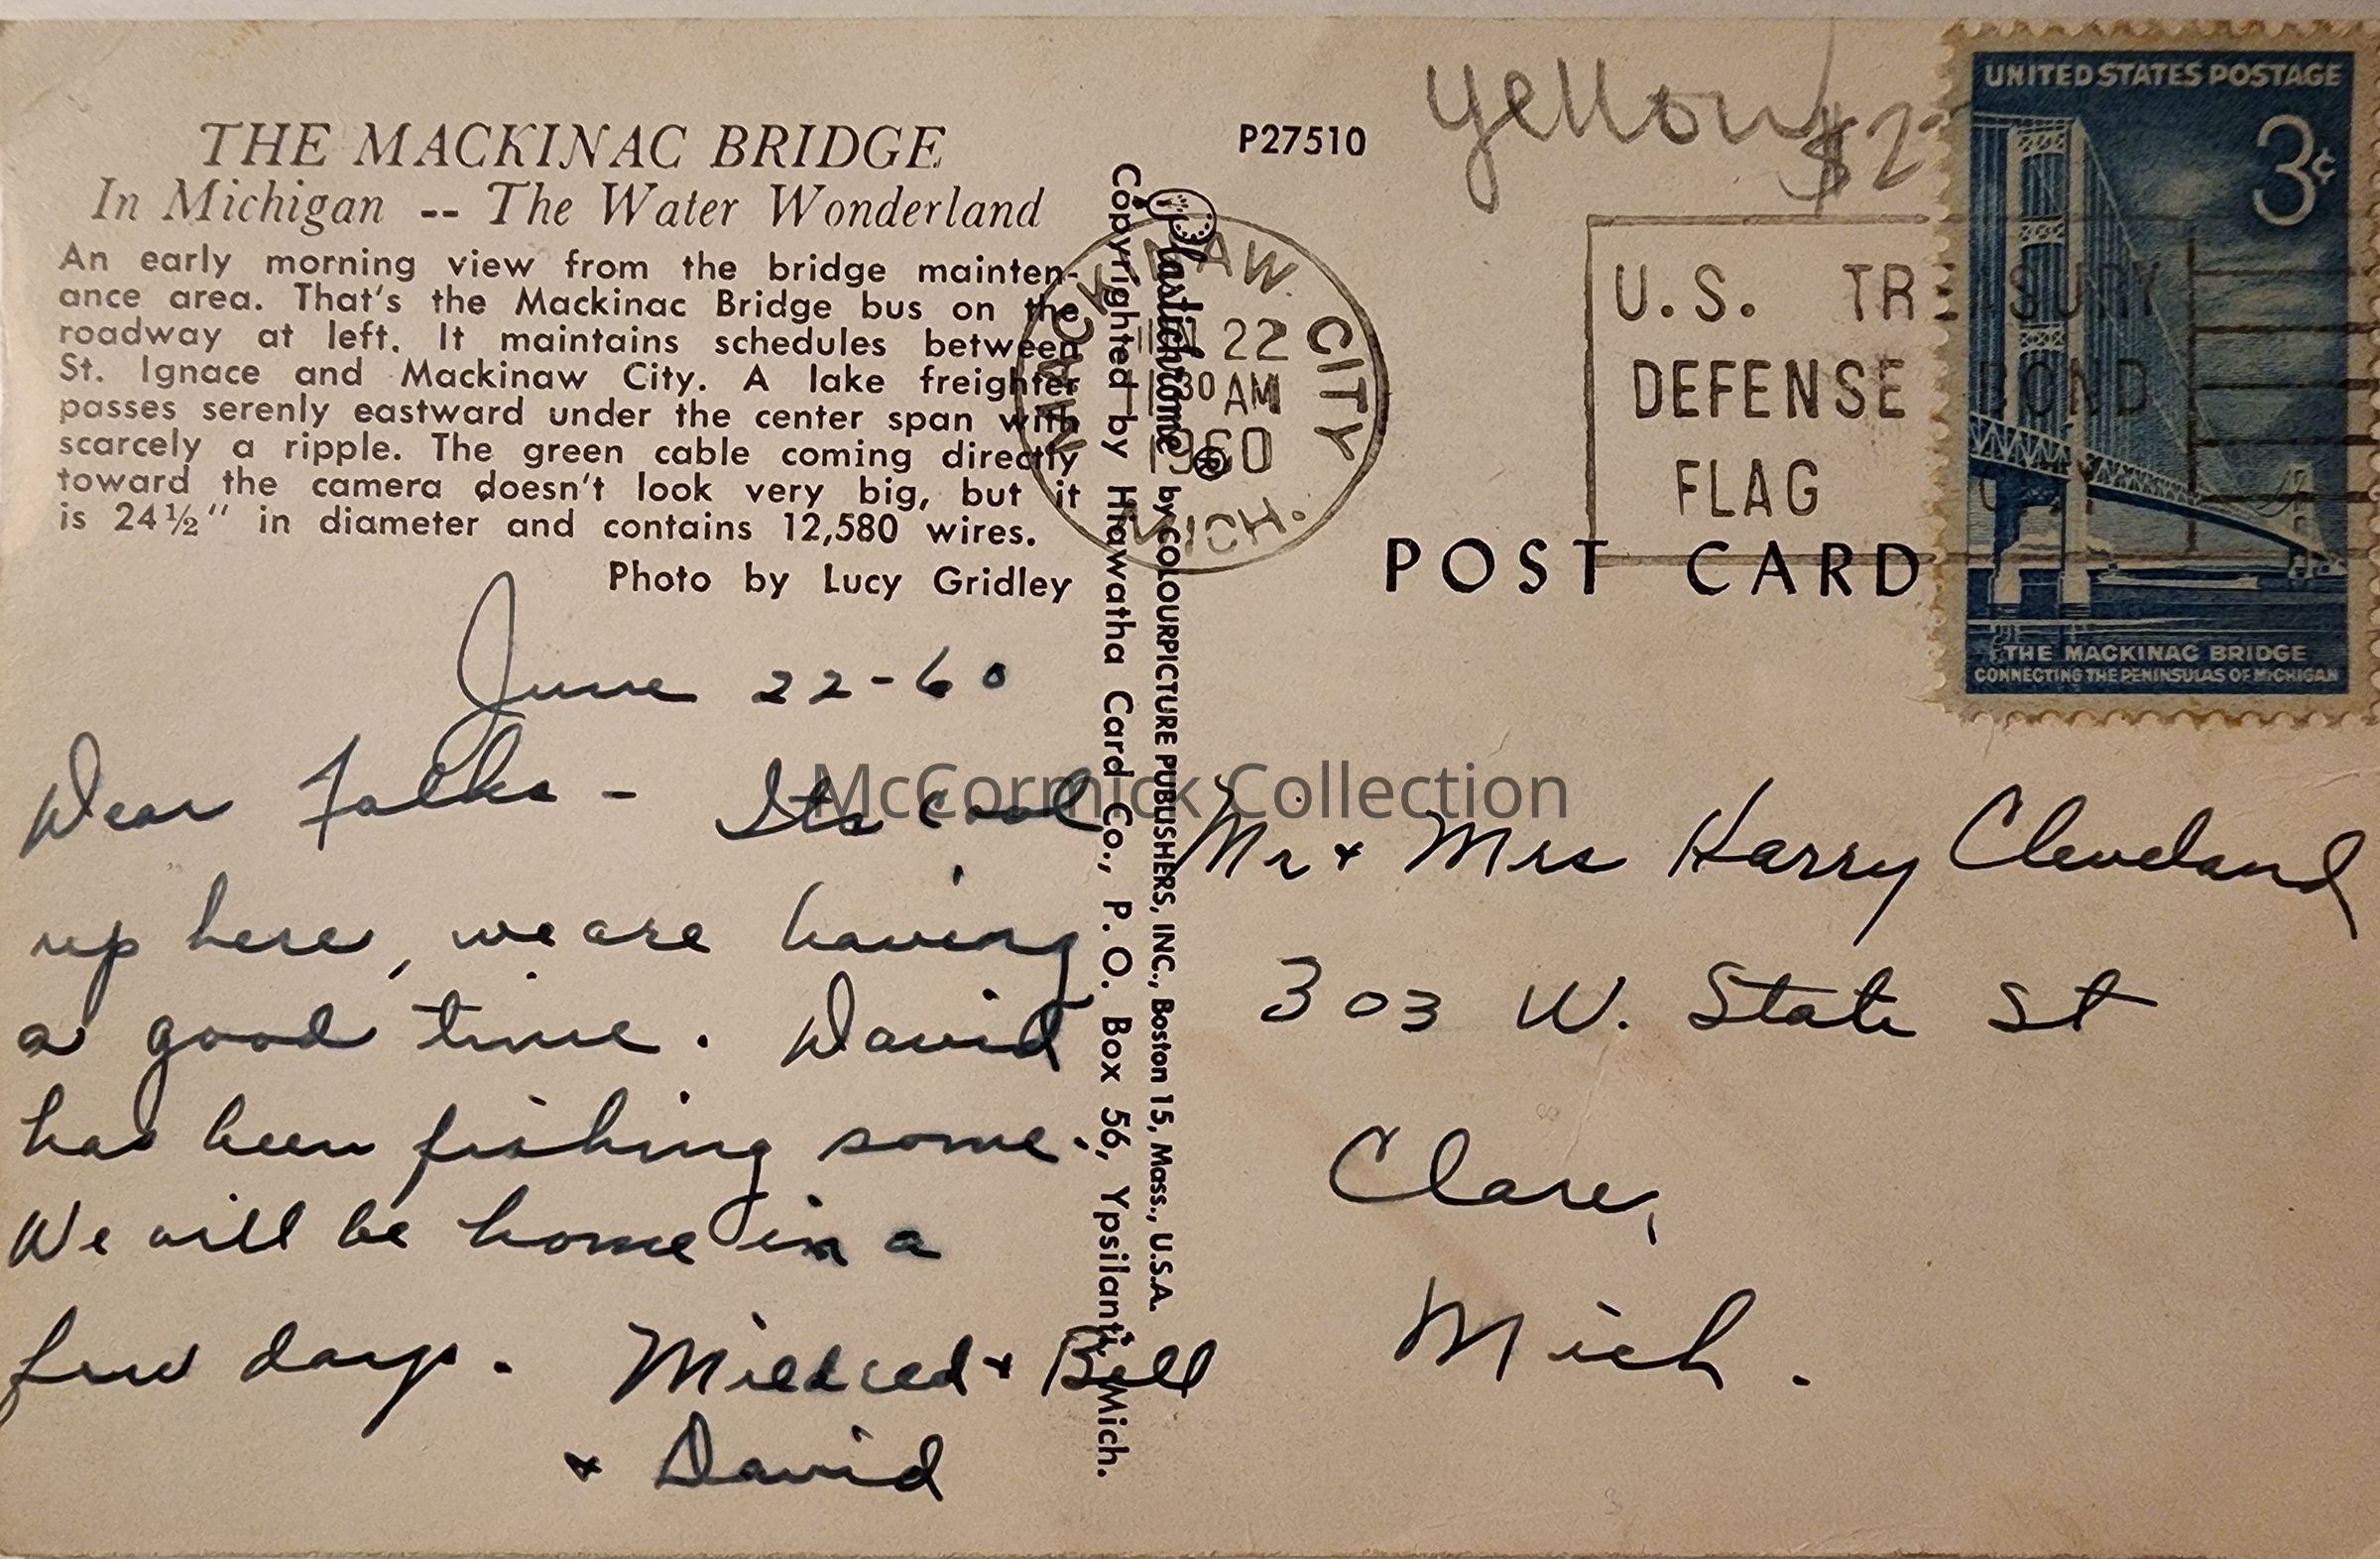 THE MACKINAC BRIDGE
In Michigan -- The Water Wonderland
An early morning view from the bridge mainten-
ance area. That's the Mackinac Bridge bus on the
roadway at left. It maintains schedules between
St. Ignace and Mackinaw City. A lake freighter
passes serenly eastward under the center span with
scarcely a ripple. The green cable coming directly
toward the camera doesn't look very big, but it
is 24½" in diameter and contains 12,580 wires.
Photo by Lucy Gridley
June 22-60
Dear Folks - Its cool
up here, we are having
a good time. David
has been fishing some.
We will be home in a
few days. Mildred + Bill
+ David
Copyrighted by Hiawatha Card Co., P. O. Box 56, Ypsilanti, Mich.
Plastichrome ® by COLOURPICTURE PUBLISHERS, INC., Boston 15, Mass., U.S.A.
P27510
yellow
$2
MACKINAW CITY
22
30 AM
1960
MICH.
U.S. TREASURY
DEFENSE BOND
FLAG
POST CARD
UNITED STATES POSTAGE
3¢
THE MACKINAC BRIDGE
CONNECTING THE PENINSULAS OF MICHIGAN
McCormick Collection
Mr + Mrs Harry Cleveland
303 W. State St
Clare,
Mich.